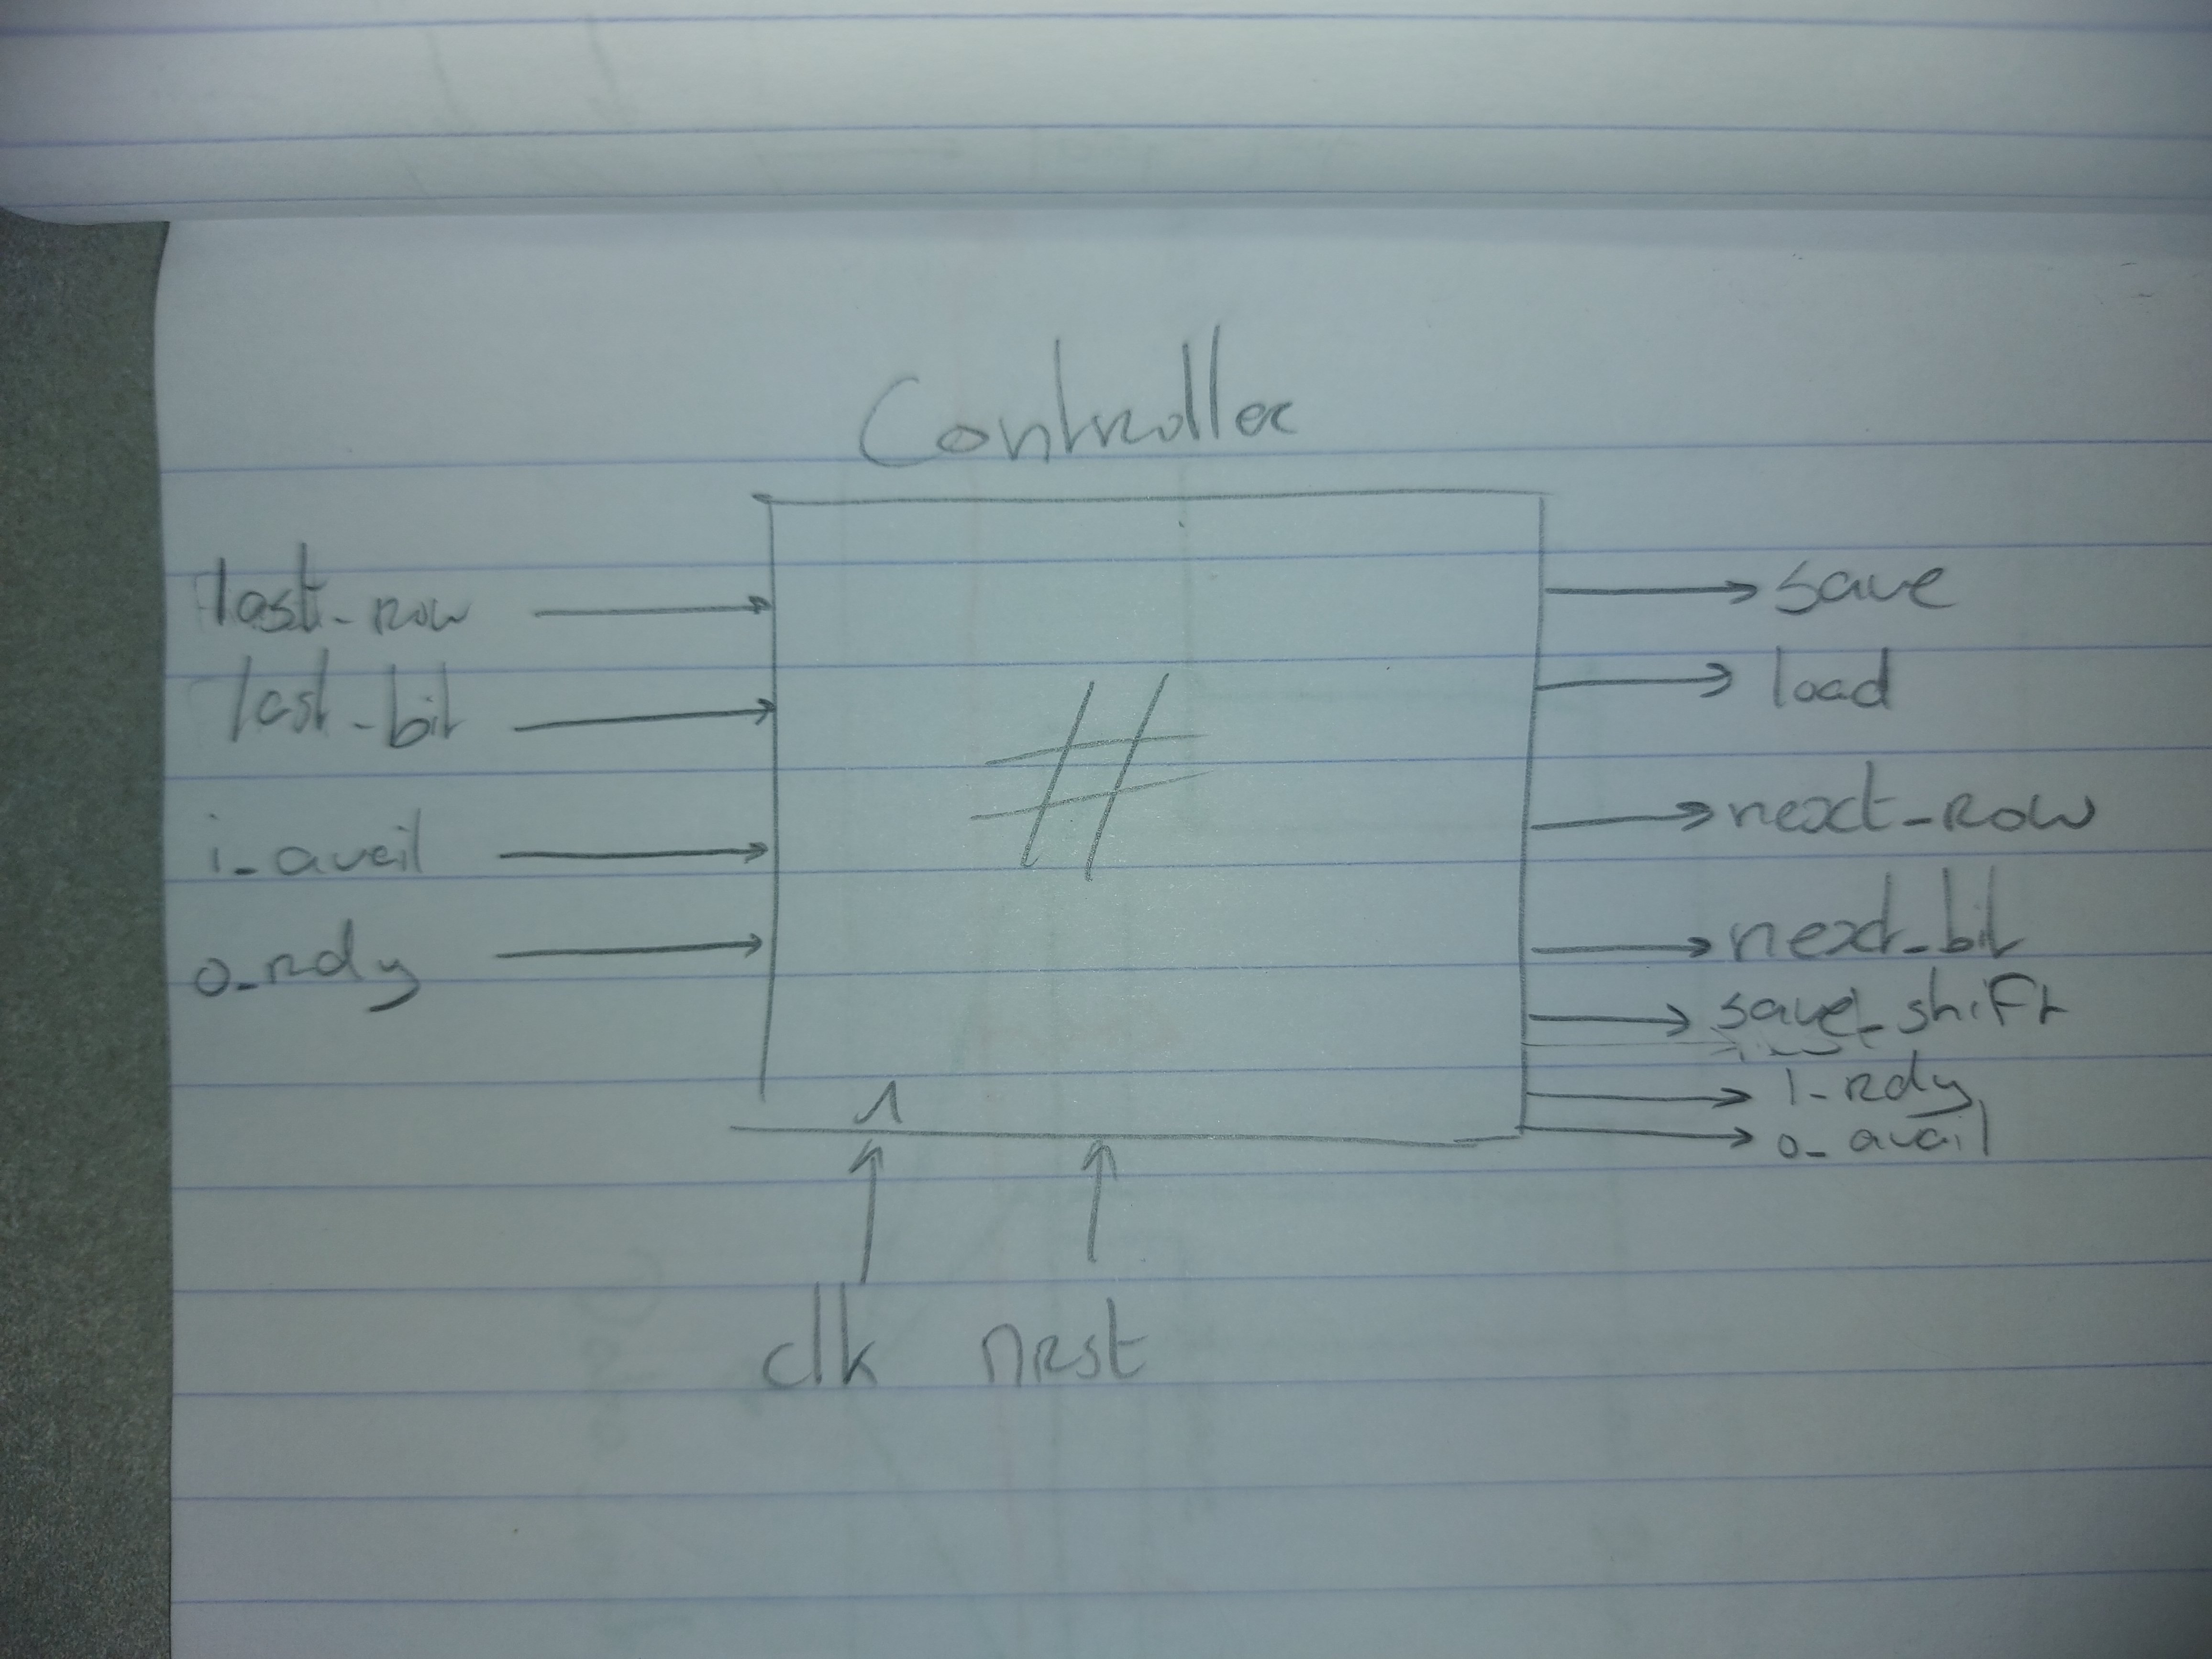 Controller
last_row
last_bit
i_avail
o_rdy
#
save
load
next_row
next_bit
save_shift
i_rdy
o_avail
clk nrst